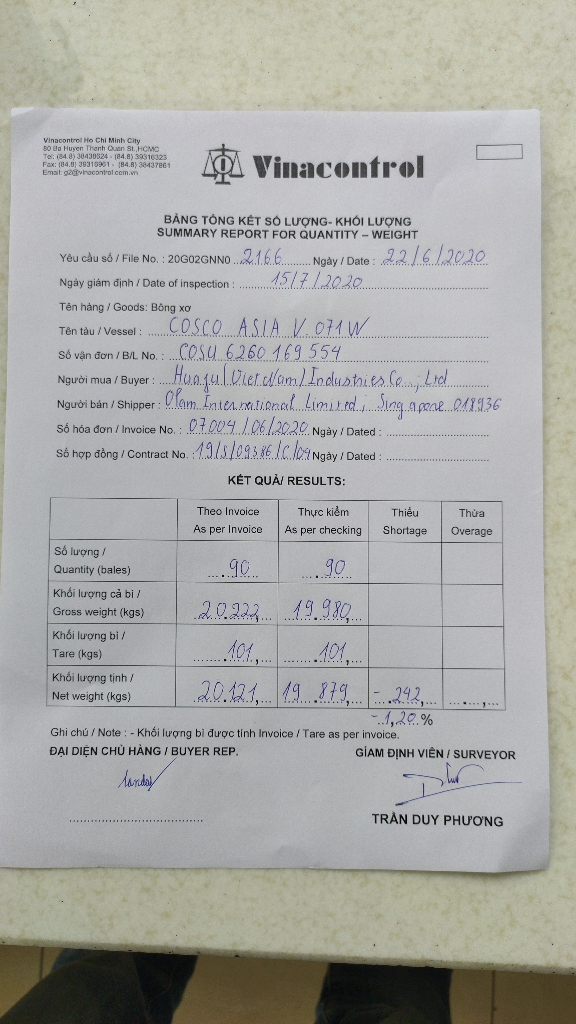 Vinacontrol Ho Chi Minh City
80 Ba Huyen Thanh Quan St.,HCMC
Tel: (84.8) 38438624 - (84.8) 39316323
Fax: (84.8) 39316961 - (84.8) 38437861
Email: g2@vinacontrol.com.vn
Vinacontrol
BẢNG TỔNG KẾT SỐ LƯỢNG- KHỐI LƯỢNG
SUMMARY REPORT FOR QUANTITY – WEIGHT
Yêu cầu số / File No. : 20G02GNN0 2166 Ngày / Date : 22/6/2020
Ngày giám định / Date of inspection : 15/7/2020
Tên hàng / Goods: Bông xơ
Tên tàu / Vessel : COSCO ASIA V. 071W
Số vận đơn / B/L No. : COSU 6260 169 554
Người mua / Buyer : Huafu (Viet Nam) Industries Co., Ltd
Người bán / Shipper : Olam International Limited, Singapore 018936
Số hóa đơn / Invoice No. : 07004/06/2020 Ngày / Dated :
Số hợp đồng / Contract No. : 19/S/09386/C/09 Ngày / Dated :
KẾT QUẢ/ RESULTS:
Theo Invoice Thực kiểm Thiếu Thừa
As per Invoice As per checking Shortage Overage
Số lượng /
Quantity (bales) 90 90
Khối lượng cả bì /
Gross weight (kgs) 20.222, 19.980,
Khối lượng bì /
Tare (kgs) 101, 101,
Khối lượng tịnh /
Net weight (kgs) 20.121, 19 879, - 242,
- 1,20 %
Ghi chú / Note : - Khối lượng bì được tính Invoice / Tare as per invoice.
ĐẠI DIỆN CHỦ HÀNG / BUYER REP. GIÁM ĐỊNH VIÊN / SURVEYOR
TRẦN DUY PHƯƠNG